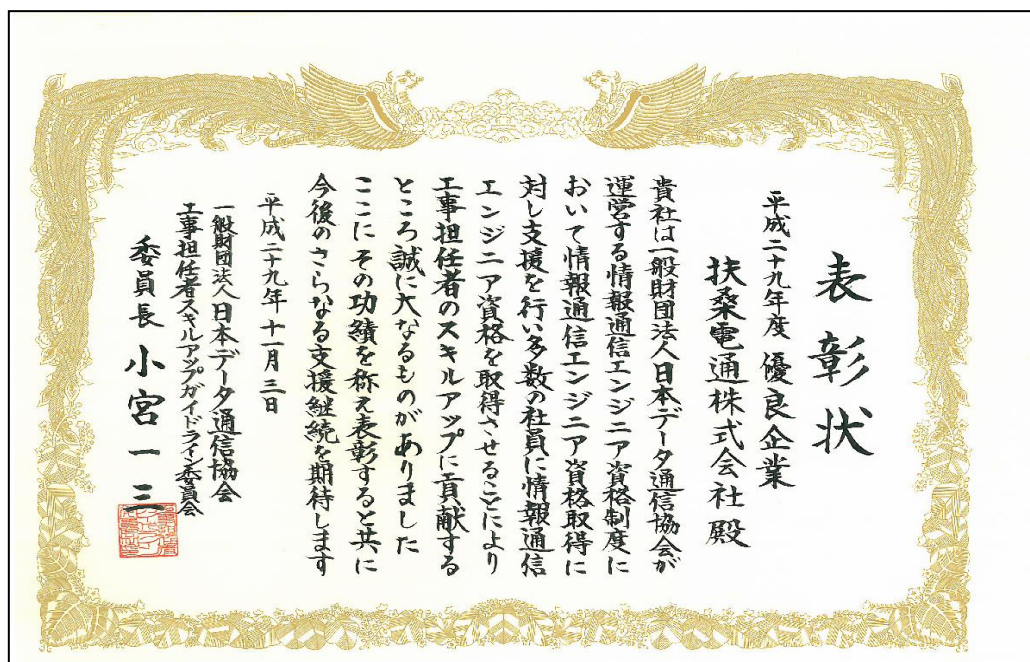 表彰状
平成二十九年度 優良企業
扶桑電通株式会社 殿
貴社は一般財団法人日本データ通信協会が
運営する情報通信エンジニア資格制度に
おいて情報通信エンジニア資格取得に
対し支援を行い多数の社員に情報通信
エンジニア資格を取得させることにより
工事担任者のスキルアップに貢献する
ところ誠に大なるものがありました
ここにその功績を称え表彰すると共に
今後のさらなる支援継続を期待します
平成二十九年十一月三日
一般財団法人日本データ通信協会
工事担任者スキルアップガイドライン委員会
委員長 小宮一三